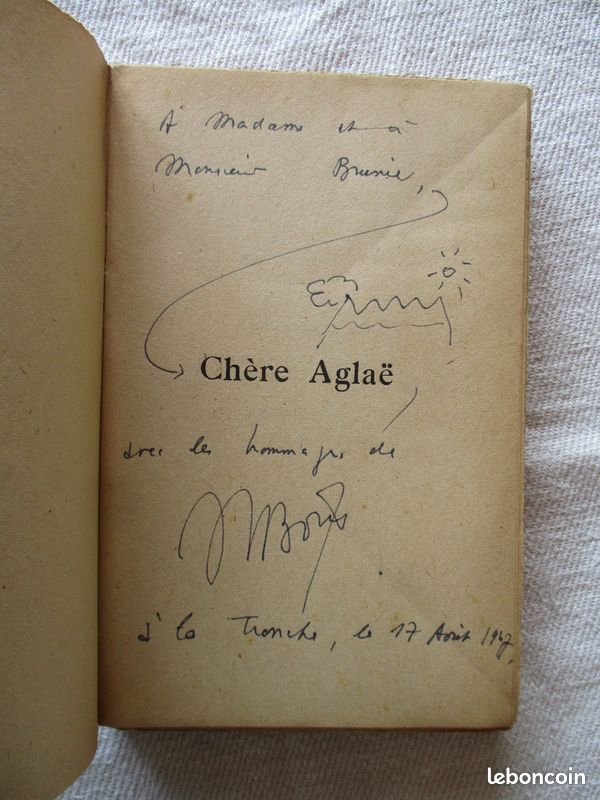 À Madame et à
Monsieur Brunie,
Chère Aglaë
avec les hommages de
à la Tronche, le 17 Août 1947,
leboncoin